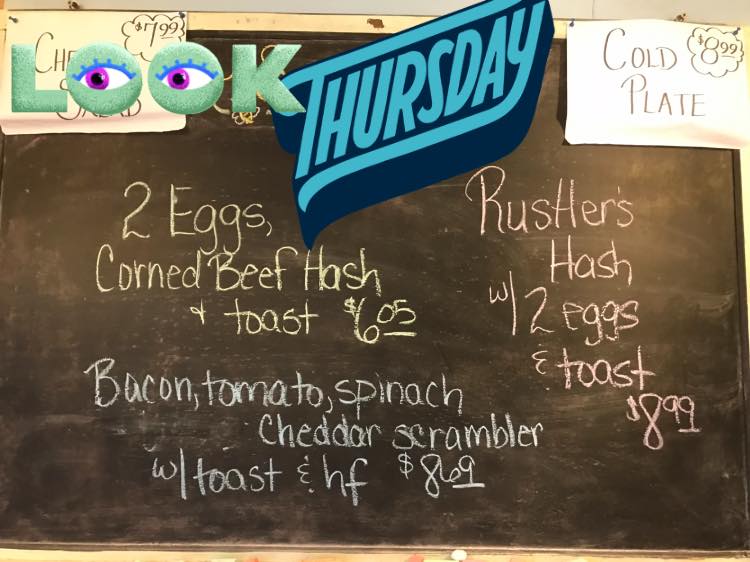 $7.99
LOOK
THURSDAY
COLD $8.99
PLATE
2 Eggs,
Corned Beef Hash
& toast $6.05
Rustler's
Hash
w/ 2 eggs
& toast
$8.99
Bacon, tomato, spinach
Cheddar scrambler
w/ toast & hf $8.69